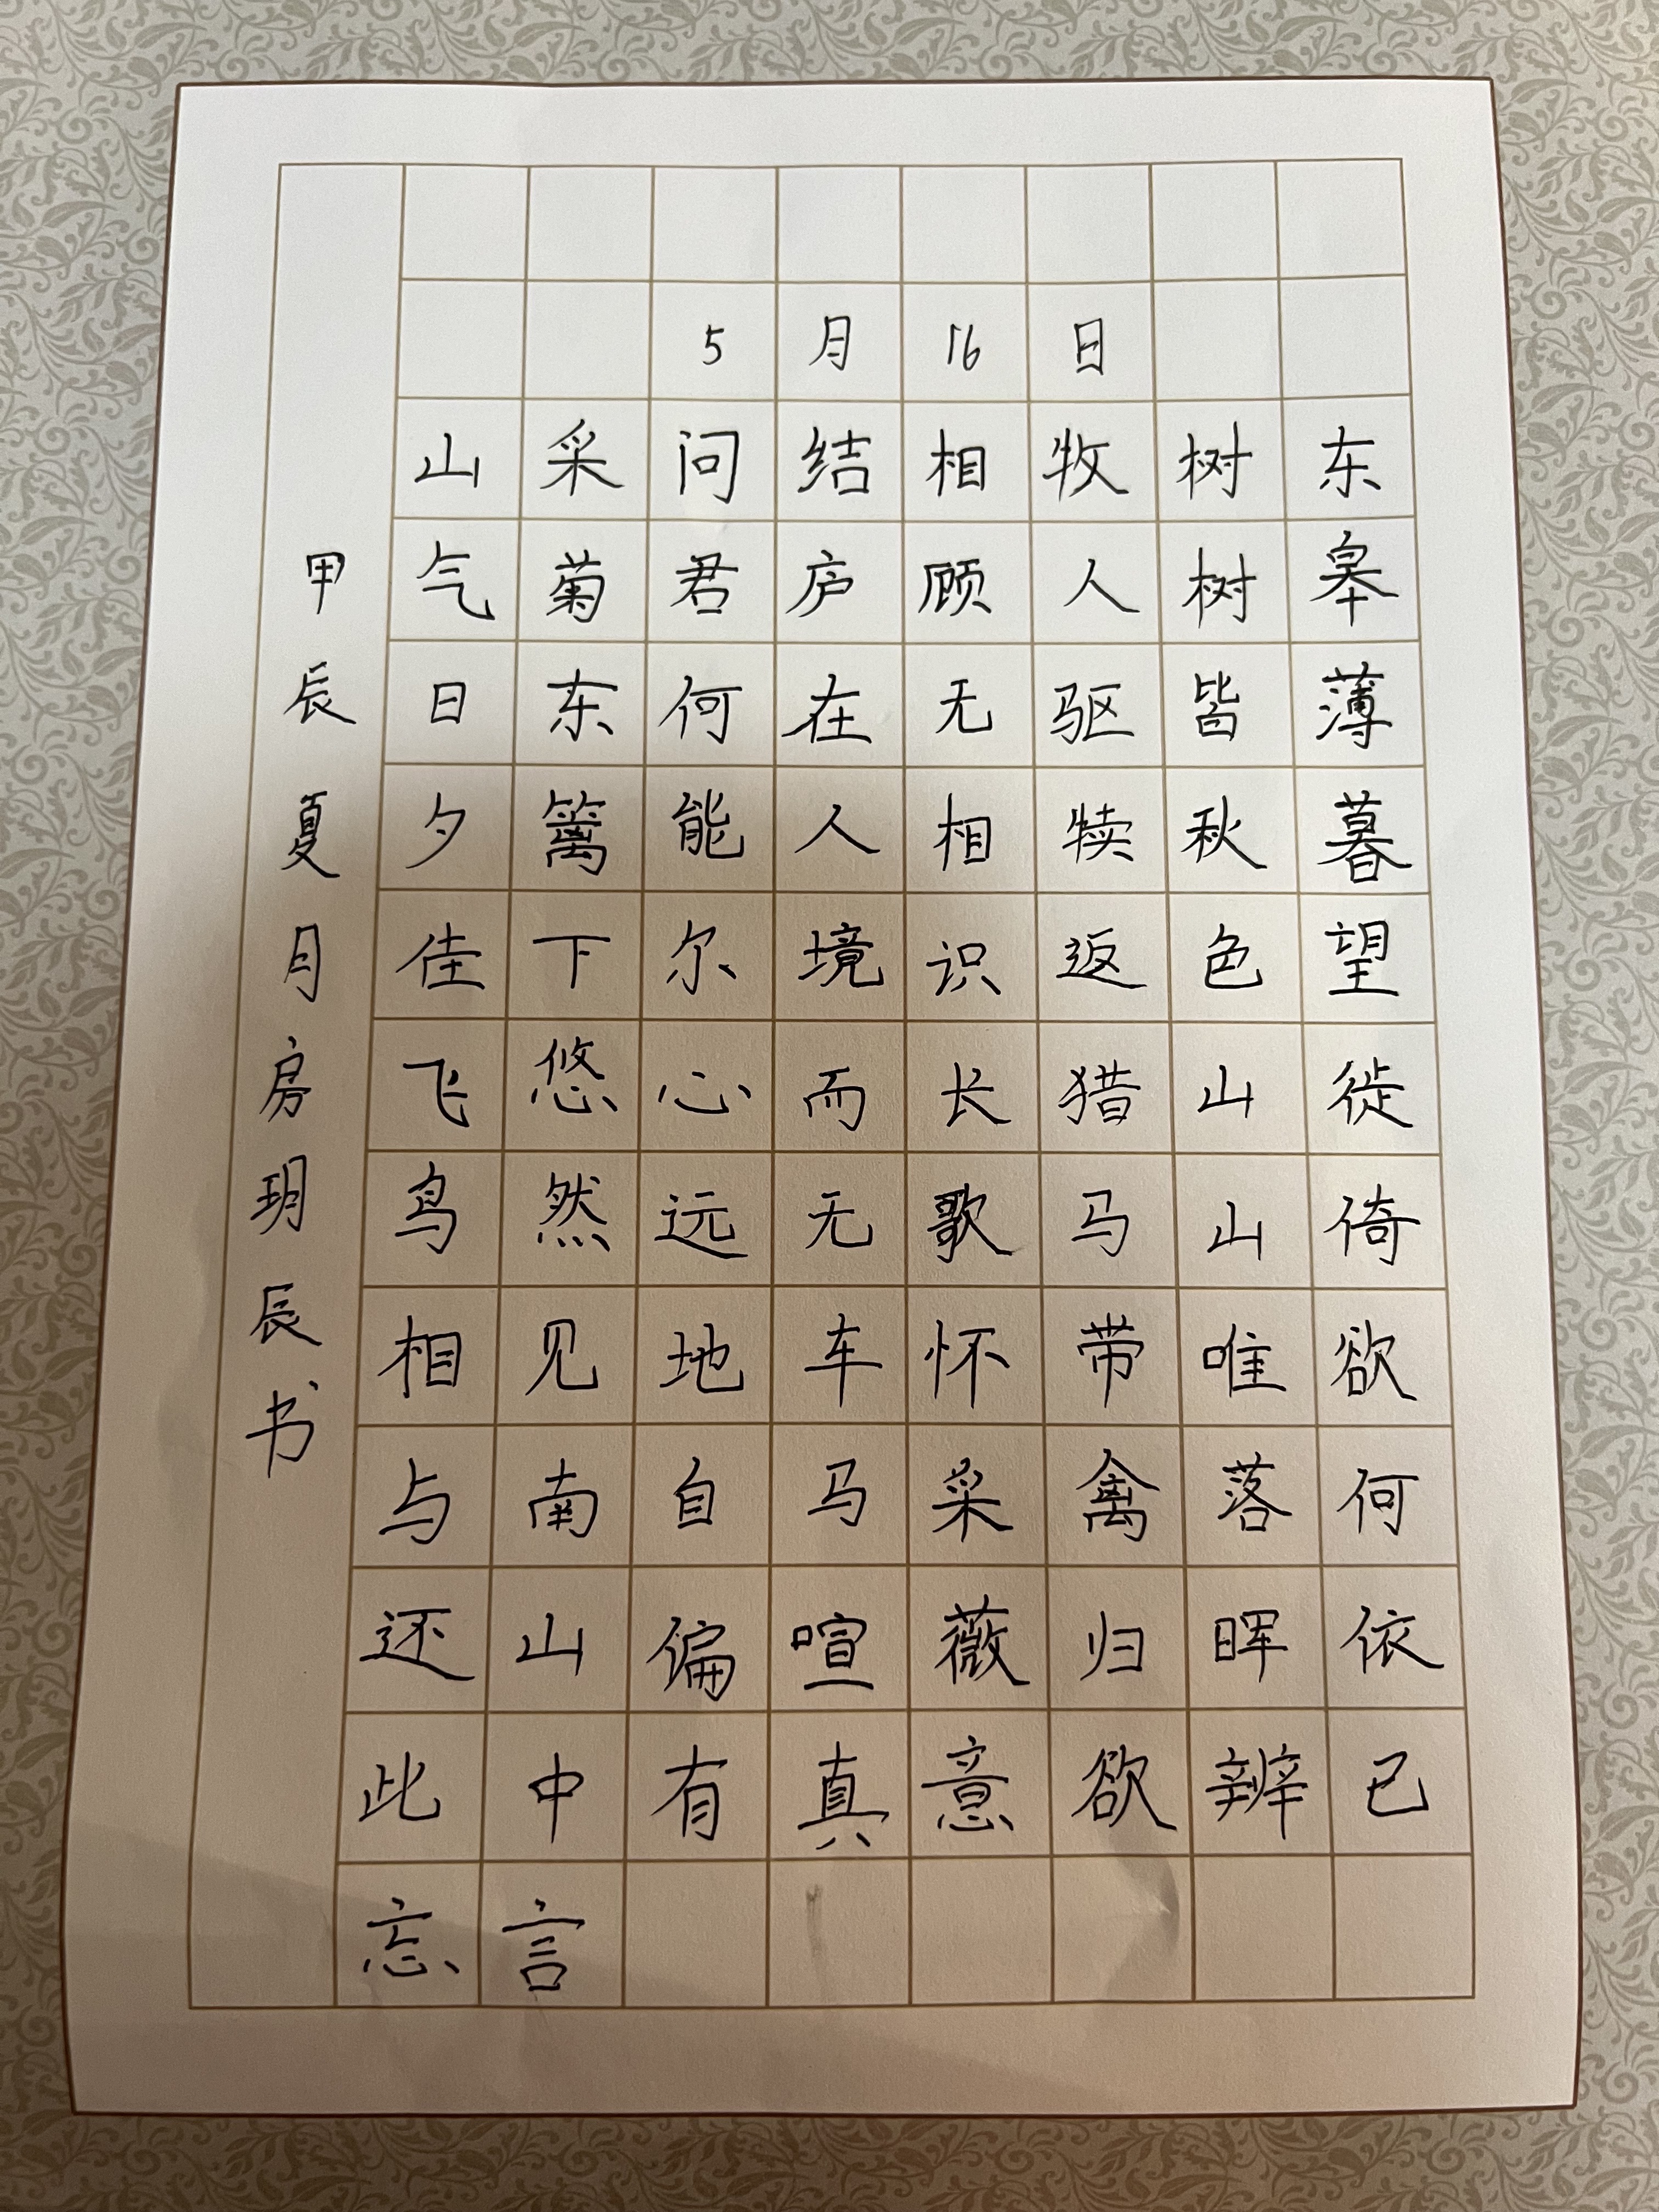 5月16日
东皋薄暮望徙倚欲何依
树树皆秋色山山唯落晖
牧人驱犊返猎马带禽归
相顾无相识长歌怀采薇
结庐在人境而无车马喧
问君何能尔心远地自偏
采菊东篱下悠然见南山
山气日夕佳飞鸟相与还
此中有真意欲辨已
忘言
甲辰夏月房玥辰书